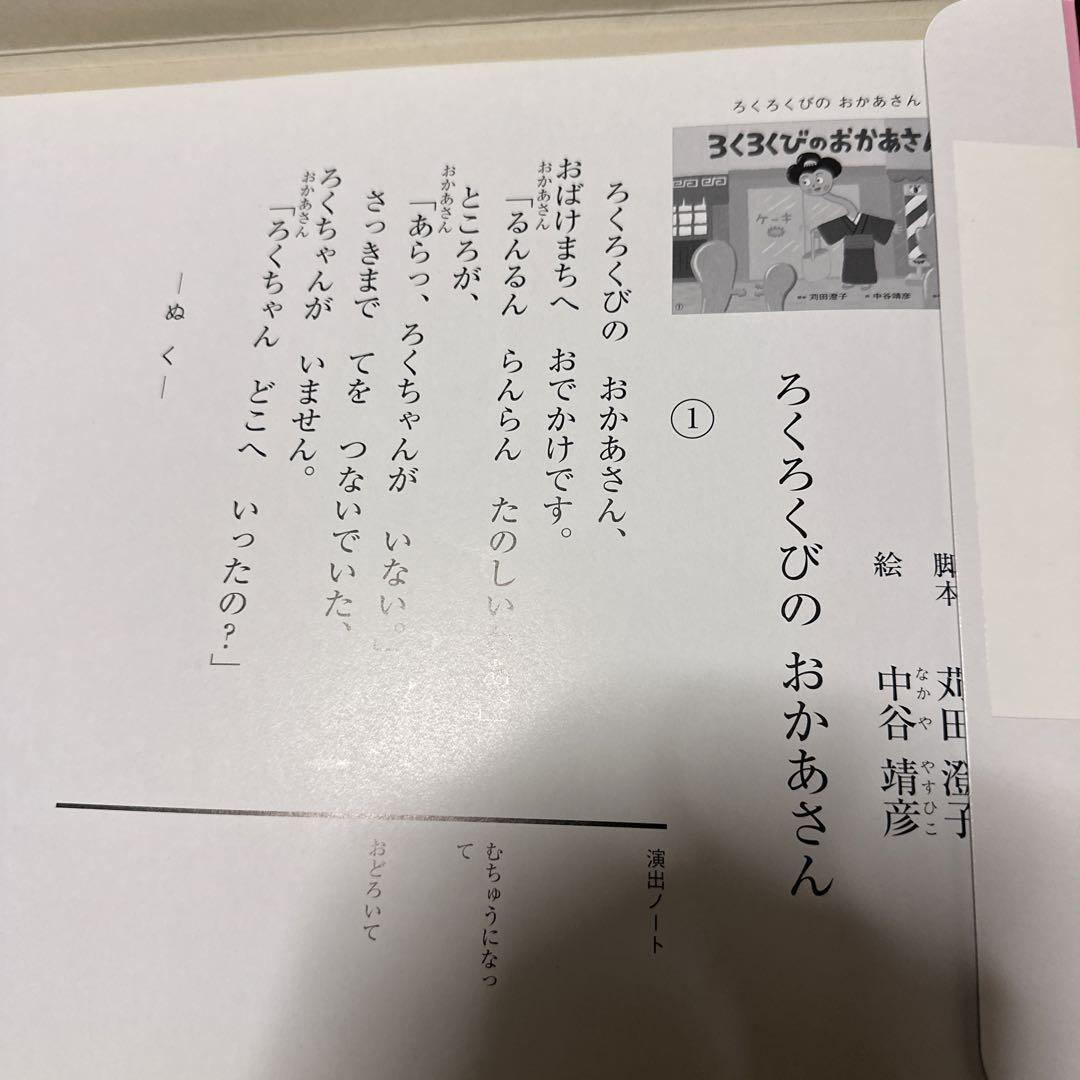 ろくろくびの おかあさん
ろくろくびのおかあさん
ケーキ
苅田澄子
中谷靖彦
①
脚本 苅田 澄子
絵 中谷 靖彦
なかや やすひこ
ろくろくびの おかあさん
①
ろくろくびの おかあさん、
おばけまちへ おでかけです。
おかあさん
「るんるん らんらん たのしい
ところが、
おかあさん
「あらっ、ろくちゃんが いない。」
さっきまで てを つないでいた、
ろくちゃんが いません。
おかあさん
「ろくちゃん どこへ いったの？」
―ぬ く―
演出ノート
むちゅうになっ
て
おどろいて